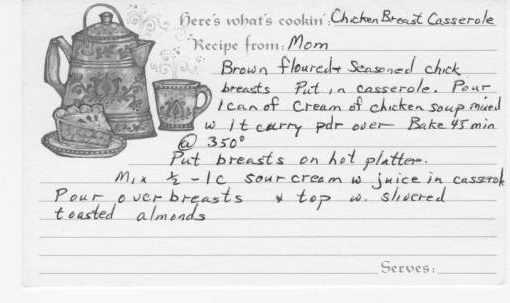 Here's what's cookin': Chicken Breast Casserole
Recipe from: Mom
Brown floured & Seasoned chick
breasts Put in casserole. Pour
1 can of Cream of chicken soup mixed
w 1t curry pdr over Bake 45 min
@ 350°
Put breasts on hot platter.
Mix ½ - 1c sour cream w juice in casserole
Pour over breasts & top w. slivered
toasted almonds
Serves: